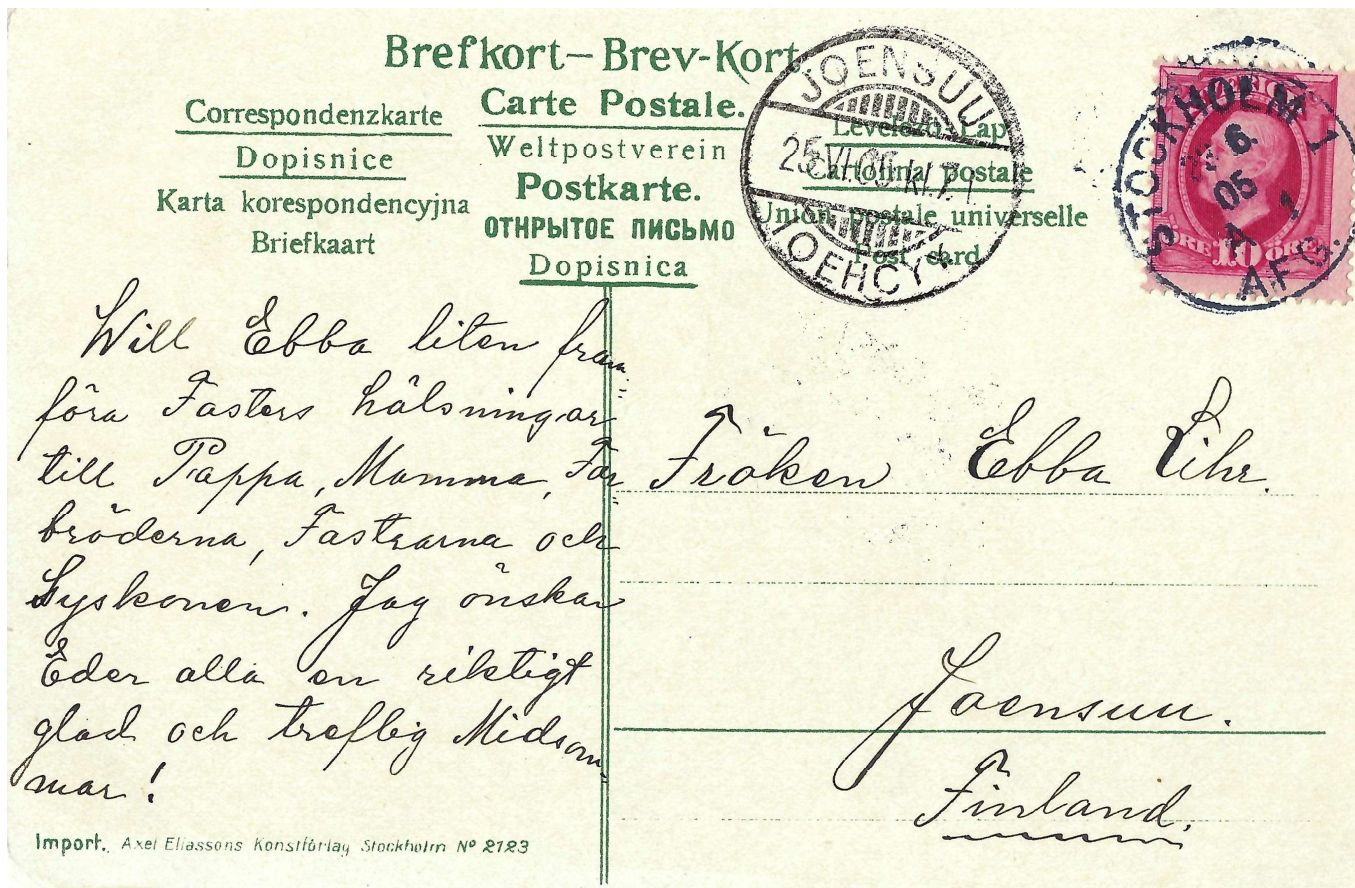 Brefkort – Brev-Kort
Correspondenzkarte
Dopisnice
Karta korespondencyjna
Briefkaart
Carte Postale.
Weltpostverein
Postkarte.
ОТКРЫТОЕ ПИСЬМО
Dopisnica
Levelező-Lap
Cartolina postale
Union postale universelle
Post card
JOENSUU
25.VI.05 kl.7.
ІОЕНСУУ
STOCKHOLM 1
6
05
AFG.
ÖRE 10 ÖRE
Will Ebba liten fram=
föra Fasters hälsningar
till Pappa, Mamma, Far=
bröderna, Fastrarna och
Syskonen. Jag önskar
Eder alla en riktigt
glad och treflig Midsom=
mar!
Fröken Ebba Lihr.
Joensuu.
Finland.
Import. Axel Eliassons Konstförlag Stockholm Nº 2123